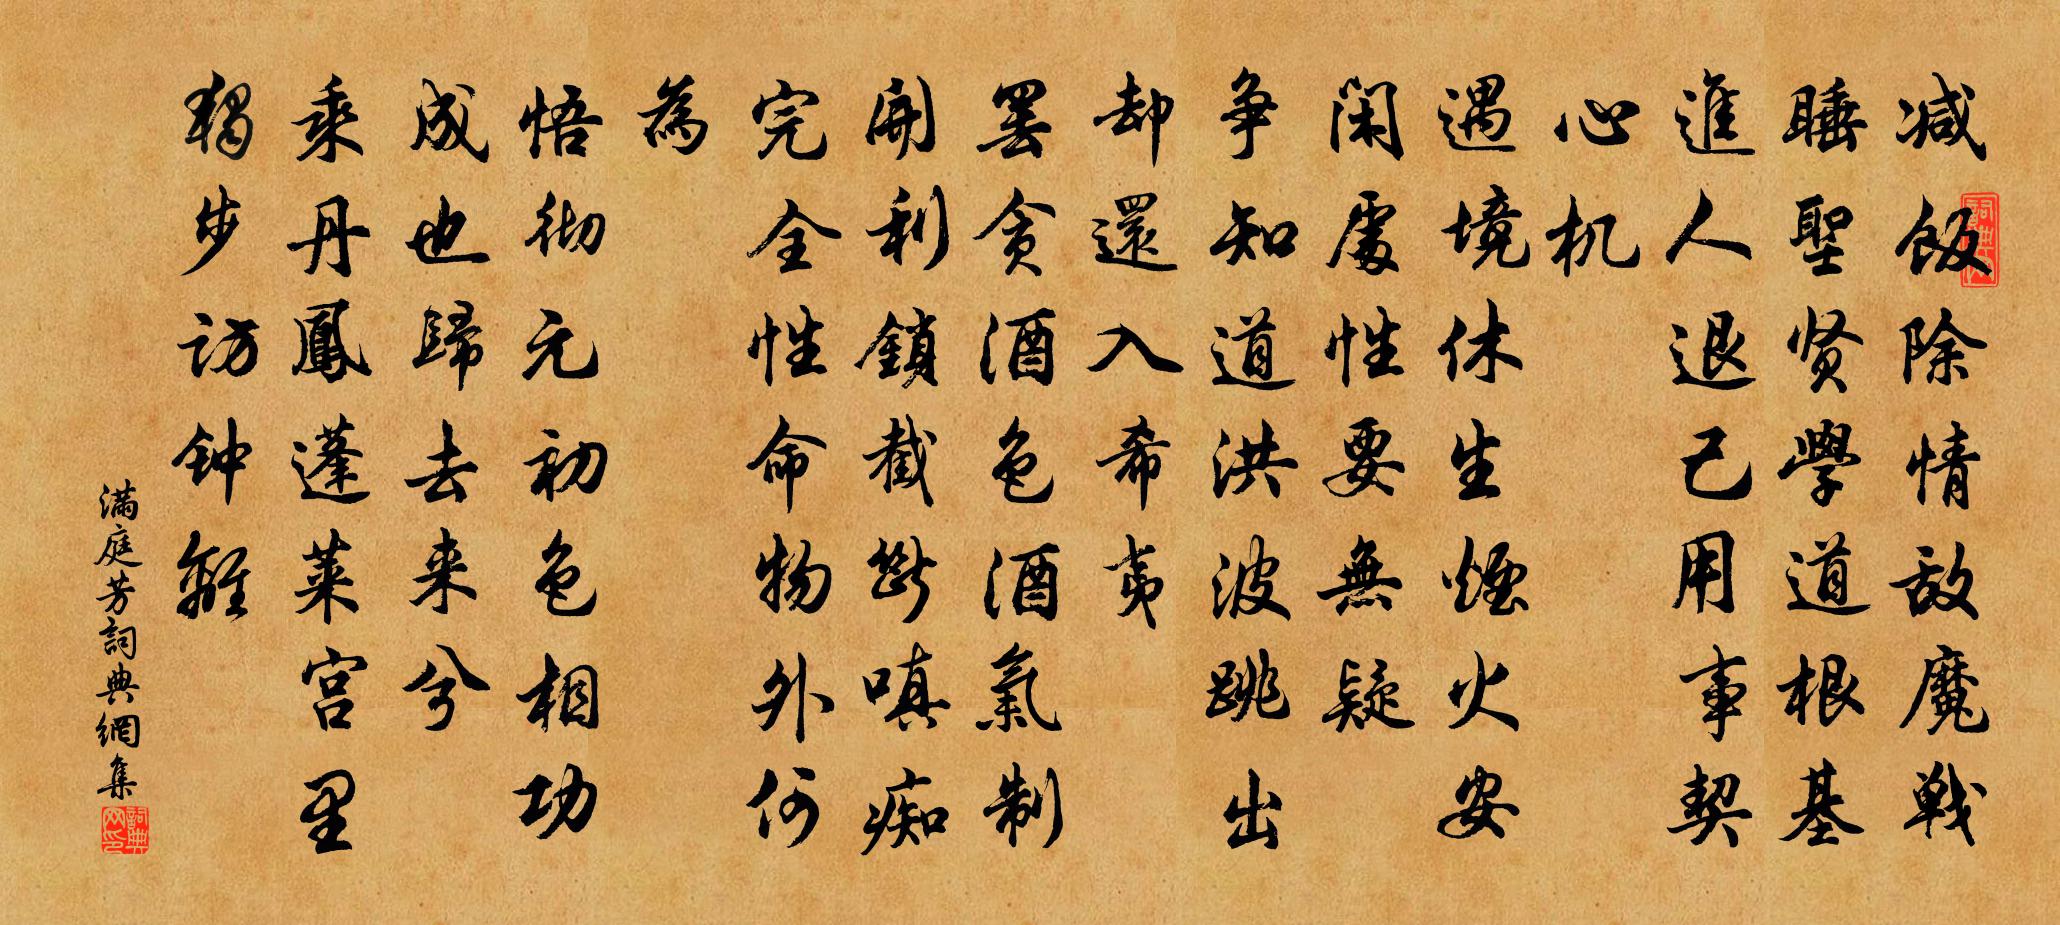 减飯除情敌魔戦
睡聖贤學道根基
進人退己用事契
心机
遇境休生煙火安
閑處性要無疑
争知道洪波跳出
却還入希夷
罢贪酒色酒氣制
開利鎖截斷嗔痴
完全性命物外何
為
悟彻元初色相功
成也歸去来兮
乘丹鳳蓬莱宫里
獨步访钟離
滿庭芳詞典網集